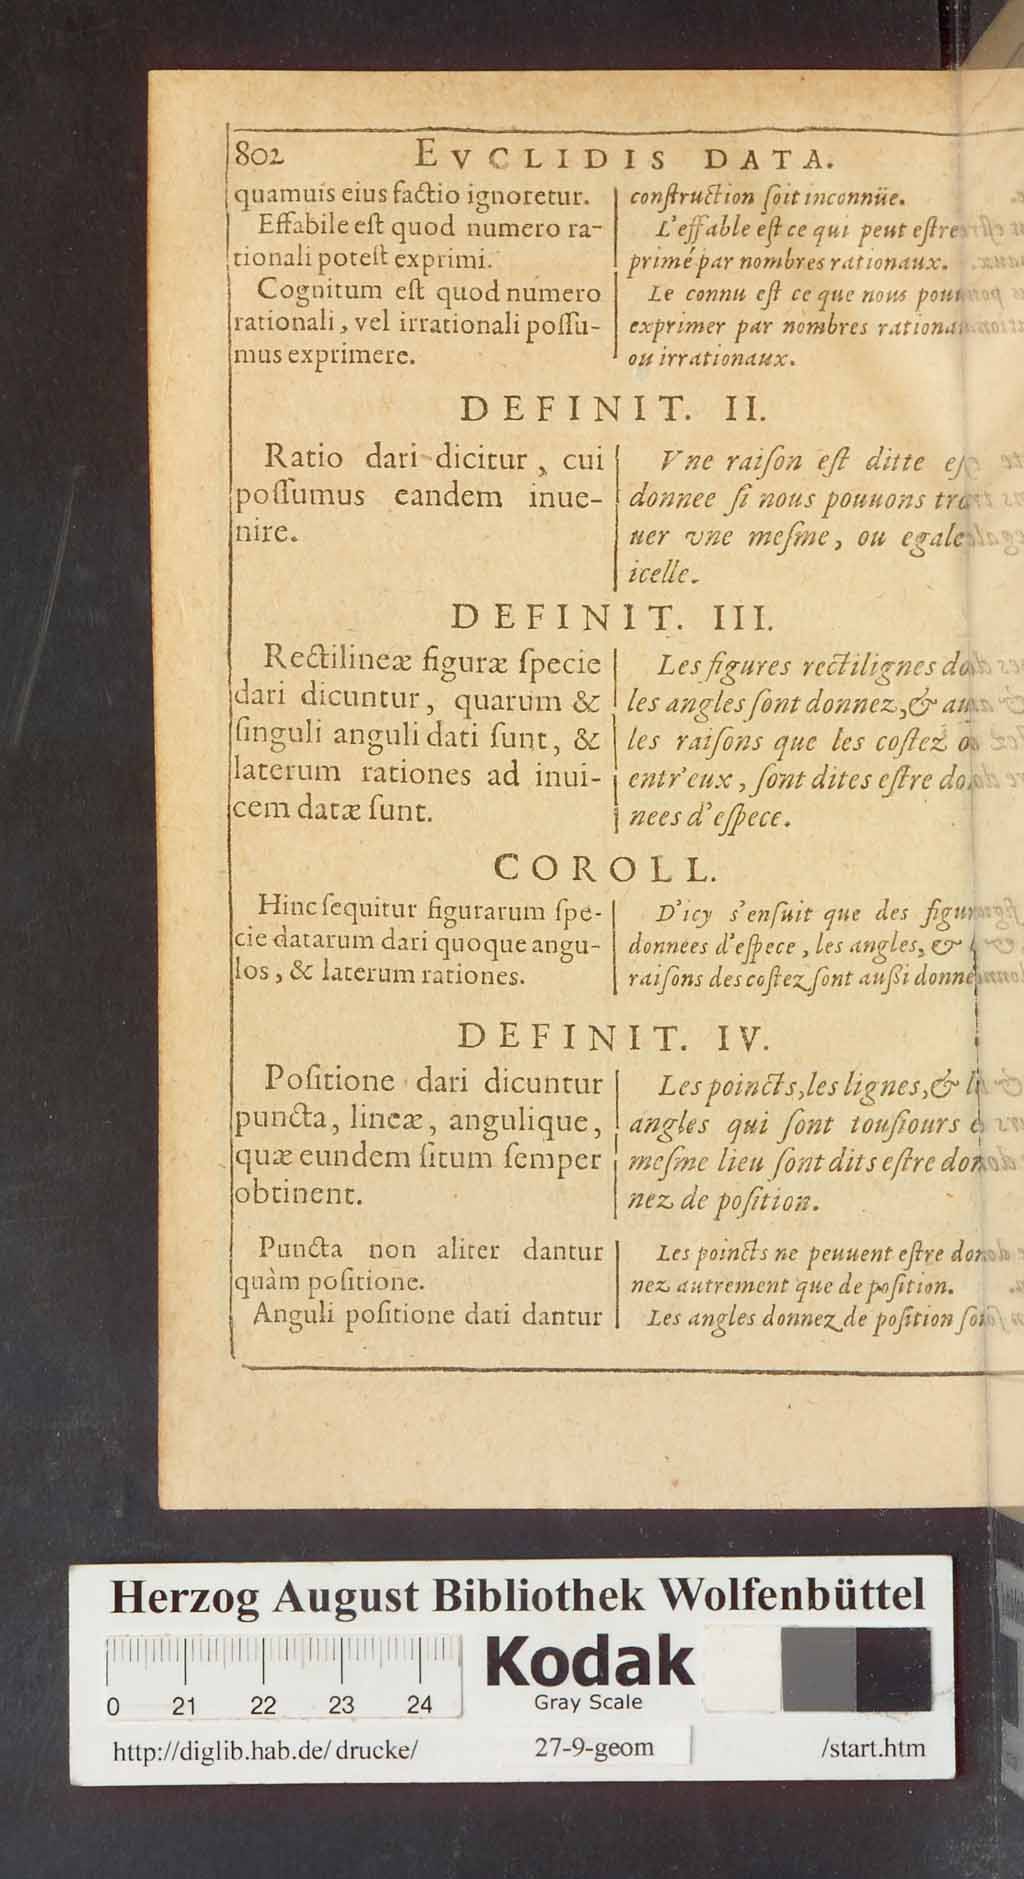 802 EVCLIDIS DATA.
quamuis eius factio ignoretur.
Effabile est quod numero ra-
tionali potest exprimi.
Cognitum est quod numero
rationali, vel irrationali possu-
mus exprimere.
construction soit inconnüe.
L'effable est ce qui peut estre
primé par nombres rationaux.
Le connu est ce que nous
exprimer par nombres
ou irrationaux.
DEFINIT. II.
Ratio dari dicitur, cui
possumus eandem inue-
nire.
Vne raison est ditte
donnee si nous pouuons
uer vne mesme, ou egale
icelle.
DEFINIT. III.
Rectilineæ figuræ specie
dari dicuntur, quarum &
singuli anguli dati sunt, &
laterum rationes ad inui-
cem datæ sunt.
Les figures rectilignes
les angles sont donnez, &
les raisons que les costez
entr'eux, sont dites estre
nees d'espece.
COROLL.
Hinc sequitur figurarum spe-
cie datarum dari quoque angu-
los, & laterum rationes.
D'icy s'ensuit que des
donnees d'espece, les angles, &
raisons des costez sont aussi
DEFINIT. IV.
Positione dari dicuntur
puncta, lineæ, angulique,
quæ eundem situm semper
obtinent.
Les poincts, les lignes, &
angles qui sont tousiours
mesme lieu sont dits estre
nez de position.
Puncta non aliter dantur
quàm positione.
Anguli positione dati dantur
Les poincts ne peuuent estre
nez autrement que de position.
Les angles donnez de position
Herzog August Bibliothek Wolfenbüttel
0 21 22 23 24
Kodak
Gray Scale
http://diglib.hab.de/drucke/ 27-9-geom /start.htm